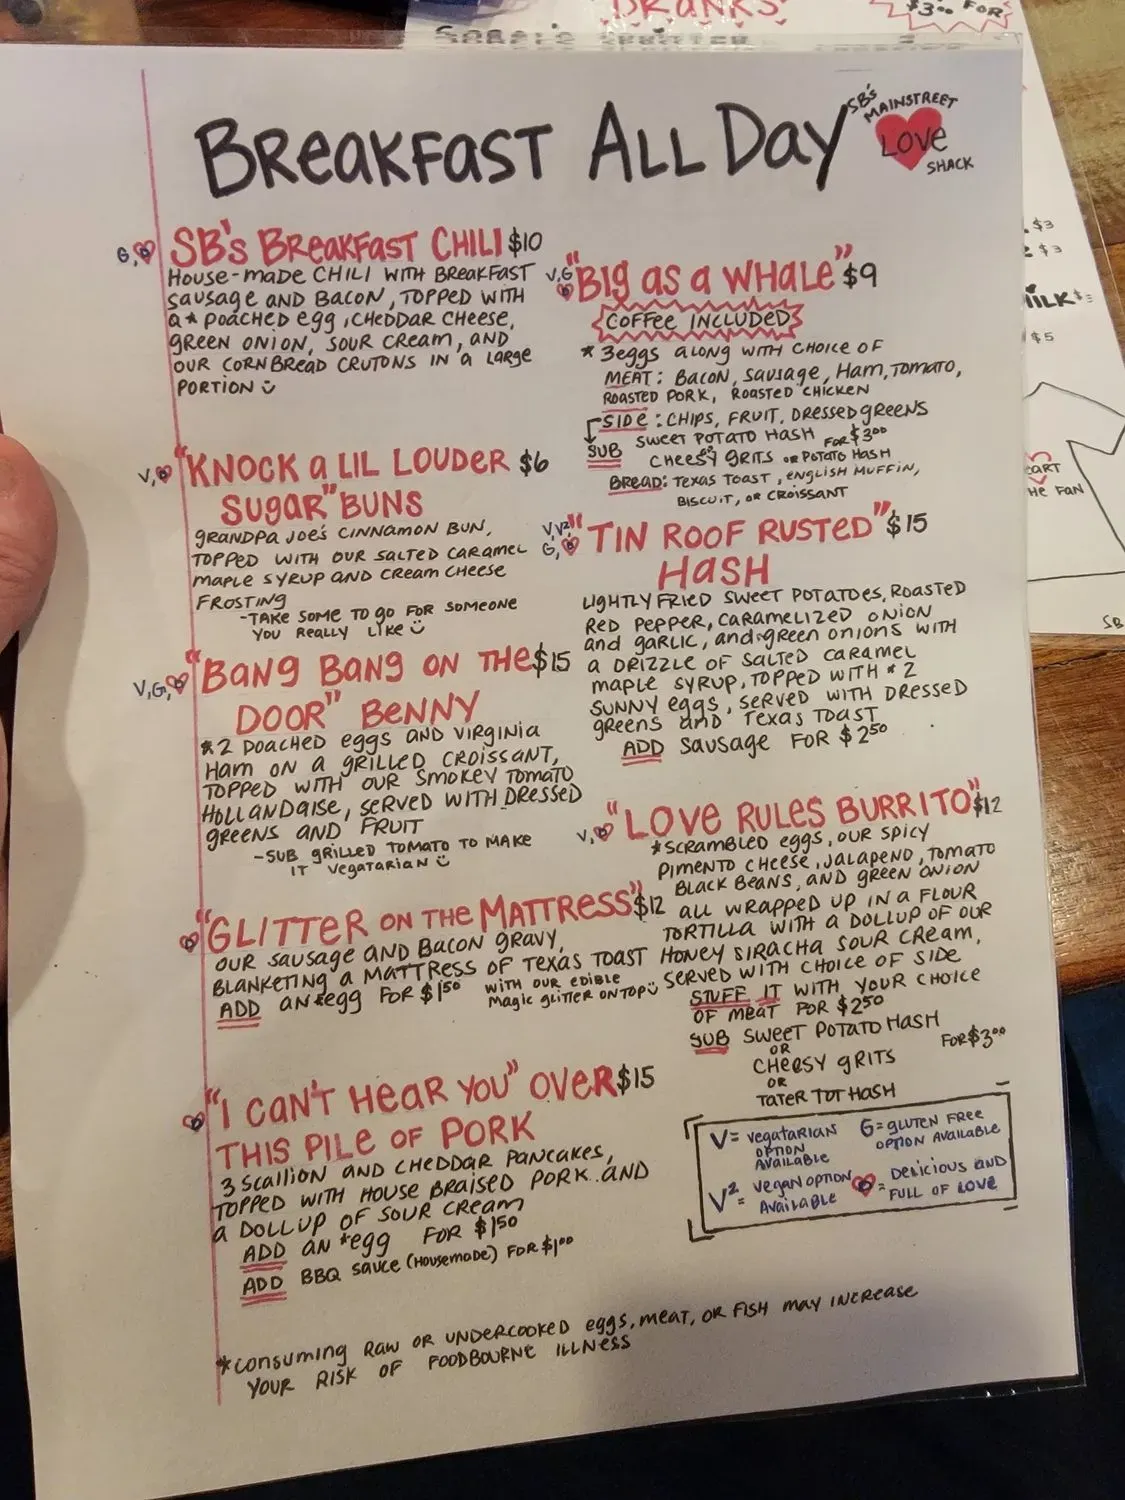 DRANKS
$3.00 FOR
BREAKFAST ALL DAY
SB'S
MAINSTREET
LOVE
SHACK
G, SB'S BREAKFAST CHILI $10
HOUSE-MADE CHILI WITH BREAKFAST
SAUSAGE AND BACON, TOPPED WITH
a * POACHED egg, CHEDDAR CHEESE,
GREEN ONION, SOUR CREAM, AND
OUR CORNBREAD CRUTONS IN A LARGE
PORTION
V, "KNOCK a LIL LOUDER $6
SUGAR" BUNS
GRANDPA JOE'S CINNAMON BUN,
TOPPED WITH OUR SALTED CARAMEL
MAPLE SYRUP AND CREAM CHEESE
FROSTING
-TAKE SOME TO GO FOR SOMEONE
YOU REALLY LIKE
V,G, "BANG BANG ON THE $15
DOOR" BENNY
*2 POACHED eggs AND VIRGINIA
HAM ON a GRILLED CROISSANT,
TOPPED WITH OUR SMOKEY TOMATO
HOLLANDAISE, SERVED WITH DRESSED
GREENS AND FRUIT
-SUB GRILLED TOMATO TO MAKE
IT VEGATARIAN
"GLITTER ON THE MATTRESS" $12
OUR SAUSAGE AND BACON GRAVY,
BLANKETING A MATTRESS OF TEXAS TOAST
WITH OUR EDIBLE
MAGIC GLITTER ON TOP
ADD AN *egg FOR $1.50
"I CAN'T HEAR YOU" OVER $15
THIS PILE OF PORK
3 SCALLION AND CHEDDAR PANCAKES,
TOPPED WITH HOUSE BRAISED PORK AND
a DOLLUP OF SOUR CREAM
ADD AN *egg FOR $1.50
ADD BBQ SAUCE (HOUSEMADE) FOR $1.00
V,G "BIG AS A WHALE" $9
COFFEE INCLUDED
* 3 eggs ALONG WITH CHOICE OF
MEAT: BACON, SAUSAGE, HAM, TOMATO,
ROASTED PORK, ROASTED CHICKEN
SIDE: CHIPS, FRUIT, DRESSED GREENS
SUB SWEET POTATO HASH FOR $3.00
CHEESY GRITS OR POTATO HASH
BREAD: TEXAS TOAST, ENGLISH MUFFIN,
BISCUIT, OR CROISSANT
V,V²
G, "TIN ROOF RUSTED" $15
HASH
LIGHTLY FRIED SWEET POTATOES, ROASTED
RED PEPPER, CARAMELIZED ONION
AND GARLIC, AND GREEN ONIONS WITH
A DRIZZLE OF SALTED CARAMEL
MAPLE SYRUP, TOPPED WITH *2
SUNNY eggs, SERVED WITH DRESSED
GREENS AND TEXAS TOAST
ADD SAUSAGE FOR $2.50
V, "LOVE RULES BURRITO" $12
*SCRAMBLED eggs, OUR SPICY
PIMENTO CHEESE, JALAPENO, TOMATO
BLACK BEANS, AND GREEN ONION
ALL WRAPPED UP IN A FLOUR
TORTILLA WITH A DOLLUP OF OUR
HONEY SIRACHA SOUR CREAM,
SERVED WITH CHOICE OF SIDE
STUFF IT WITH YOUR CHOICE
OF MEAT FOR $2.50
SUB SWEET POTATO HASH
OR
CHEESY GRITS FOR $3.00
OR
TATER TOT HASH
V= VEGATARIAN
OPTION
AVAILABLE
G= GLUTEN FREE
OPTION AVAILABLE
V²= VEGAN OPTION
AVAILABLE
= DELICIOUS AND
FULL OF LOVE
*CONSUMING RAW OR UNDERCOOKED eggs, MEAT, OR FISH MAY INCREASE
YOUR RISK OF FOODBOURNE ILLNESS
$3
$3
MILK
$5
HE FAN
SB